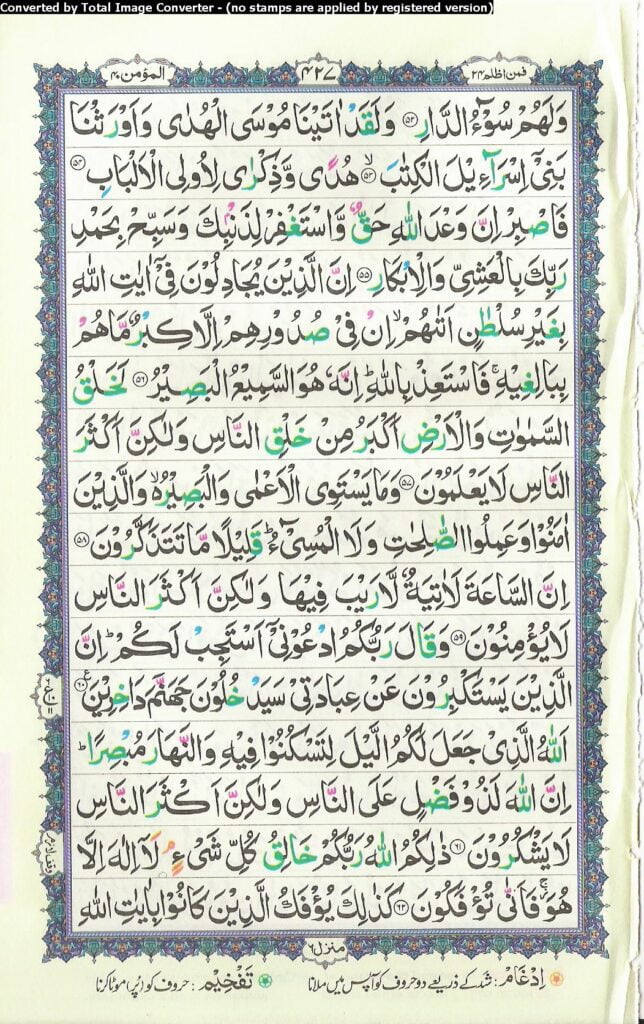 Converted by Total Image Converter - (no stamps are applied by registered version)
فمن اظلم ٢٤
٤٢٧
المؤمن ٤٠
وَلَهُمْ سُوْٓءُ الدَّارِ ﴿۵۲﴾ وَلَقَدْ اٰتَيْنَا مُوْسَى الْهُدٰى وَاَوْرَثْنَا
بَنِيْٓ اِسْرَآءِيْلَ الْكِتٰبَ ﴿۵۳﴾ۙ هُدًى وَّذِكْرٰى لِاُولِى الْاَلْبَابِ ﴿۵۴﴾
فَاصْبِرْ اِنَّ وَعْدَ اللّٰهِ حَقٌّ وَّاسْتَغْفِرْ لِذَنْۢبِكَ وَسَبِّحْ بِحَمْدِ
رَبِّكَ بِالْعَشِيِّ وَالْاِبْكَارِ ﴿۵۵﴾ اِنَّ الَّذِيْنَ يُجَادِلُوْنَ فِيْٓ اٰيٰتِ اللّٰهِ
بِغَيْرِ سُلْطٰنٍ اَتٰىهُمْ ۙ اِنْ فِيْ صُدُوْرِهِمْ اِلَّا كِبْرٌ مَّا هُمْ
بِبَالِغِيْهِ ۚ فَاسْتَعِذْ بِاللّٰهِ ؕ اِنَّهٗ هُوَ السَّمِيْعُ الْبَصِيْرُ ﴿۵۶﴾ لَخَلْقُ
السَّمٰوٰتِ وَالْاَرْضِ اَكْبَرُ مِنْ خَلْقِ النَّاسِ وَلٰكِنَّ اَكْثَرَ
النَّاسِ لَا يَعْلَمُوْنَ ﴿۵۷﴾ وَمَا يَسْتَوِى الْاَعْمٰى وَالْبَصِيْرُ ۙ وَالَّذِيْنَ
اٰمَنُوْا وَعَمِلُوا الصّٰلِحٰتِ وَلَا الْمُسِيْٓءُ ؕ قَلِيْلًا مَّا تَتَذَكَّرُوْنَ ﴿۵۸﴾
اِنَّ السَّاعَةَ لَاٰتِيَةٌ لَّا رَيْبَ فِيْهَا وَلٰكِنَّ اَكْثَرَ النَّاسِ
لَا يُؤْمِنُوْنَ ﴿۵۹﴾ وَقَالَ رَبُّكُمُ ادْعُوْنِيْٓ اَسْتَجِبْ لَكُمْ ؕ اِنَّ
الَّذِيْنَ يَسْتَكْبِرُوْنَ عَنْ عِبَادَتِيْ سَيَدْخُلُوْنَ جَهَنَّمَ دَاخِرِيْنَ ﴿۶۰﴾
اَللّٰهُ الَّذِيْ جَعَلَ لَكُمُ الَّيْلَ لِتَسْكُنُوْا فِيْهِ وَالنَّهَارَ مُبْصِرًا ؕ
اِنَّ اللّٰهَ لَذُوْ فَضْلٍ عَلَى النَّاسِ وَلٰكِنَّ اَكْثَرَ النَّاسِ
لَا يَشْكُرُوْنَ ﴿۶۱﴾ ذٰلِكُمُ اللّٰهُ رَبُّكُمْ خَالِقُ كُلِّ شَيْءٍ ۘ لَآ اِلٰهَ اِلَّا
هُوَ ۚ فَاَنّٰى تُؤْفَكُوْنَ ﴿۶۲﴾ كَذٰلِكَ يُؤْفَكُ الَّذِيْنَ كَانُوْا بِاٰيٰتِ اللّٰهِ
منزل ٦
اِدْغَام: شد کے ذریعے دو حروف کو آپس میں ملانا
تَفْخِيْم: حروف کو (پُر) موٹا کرنا